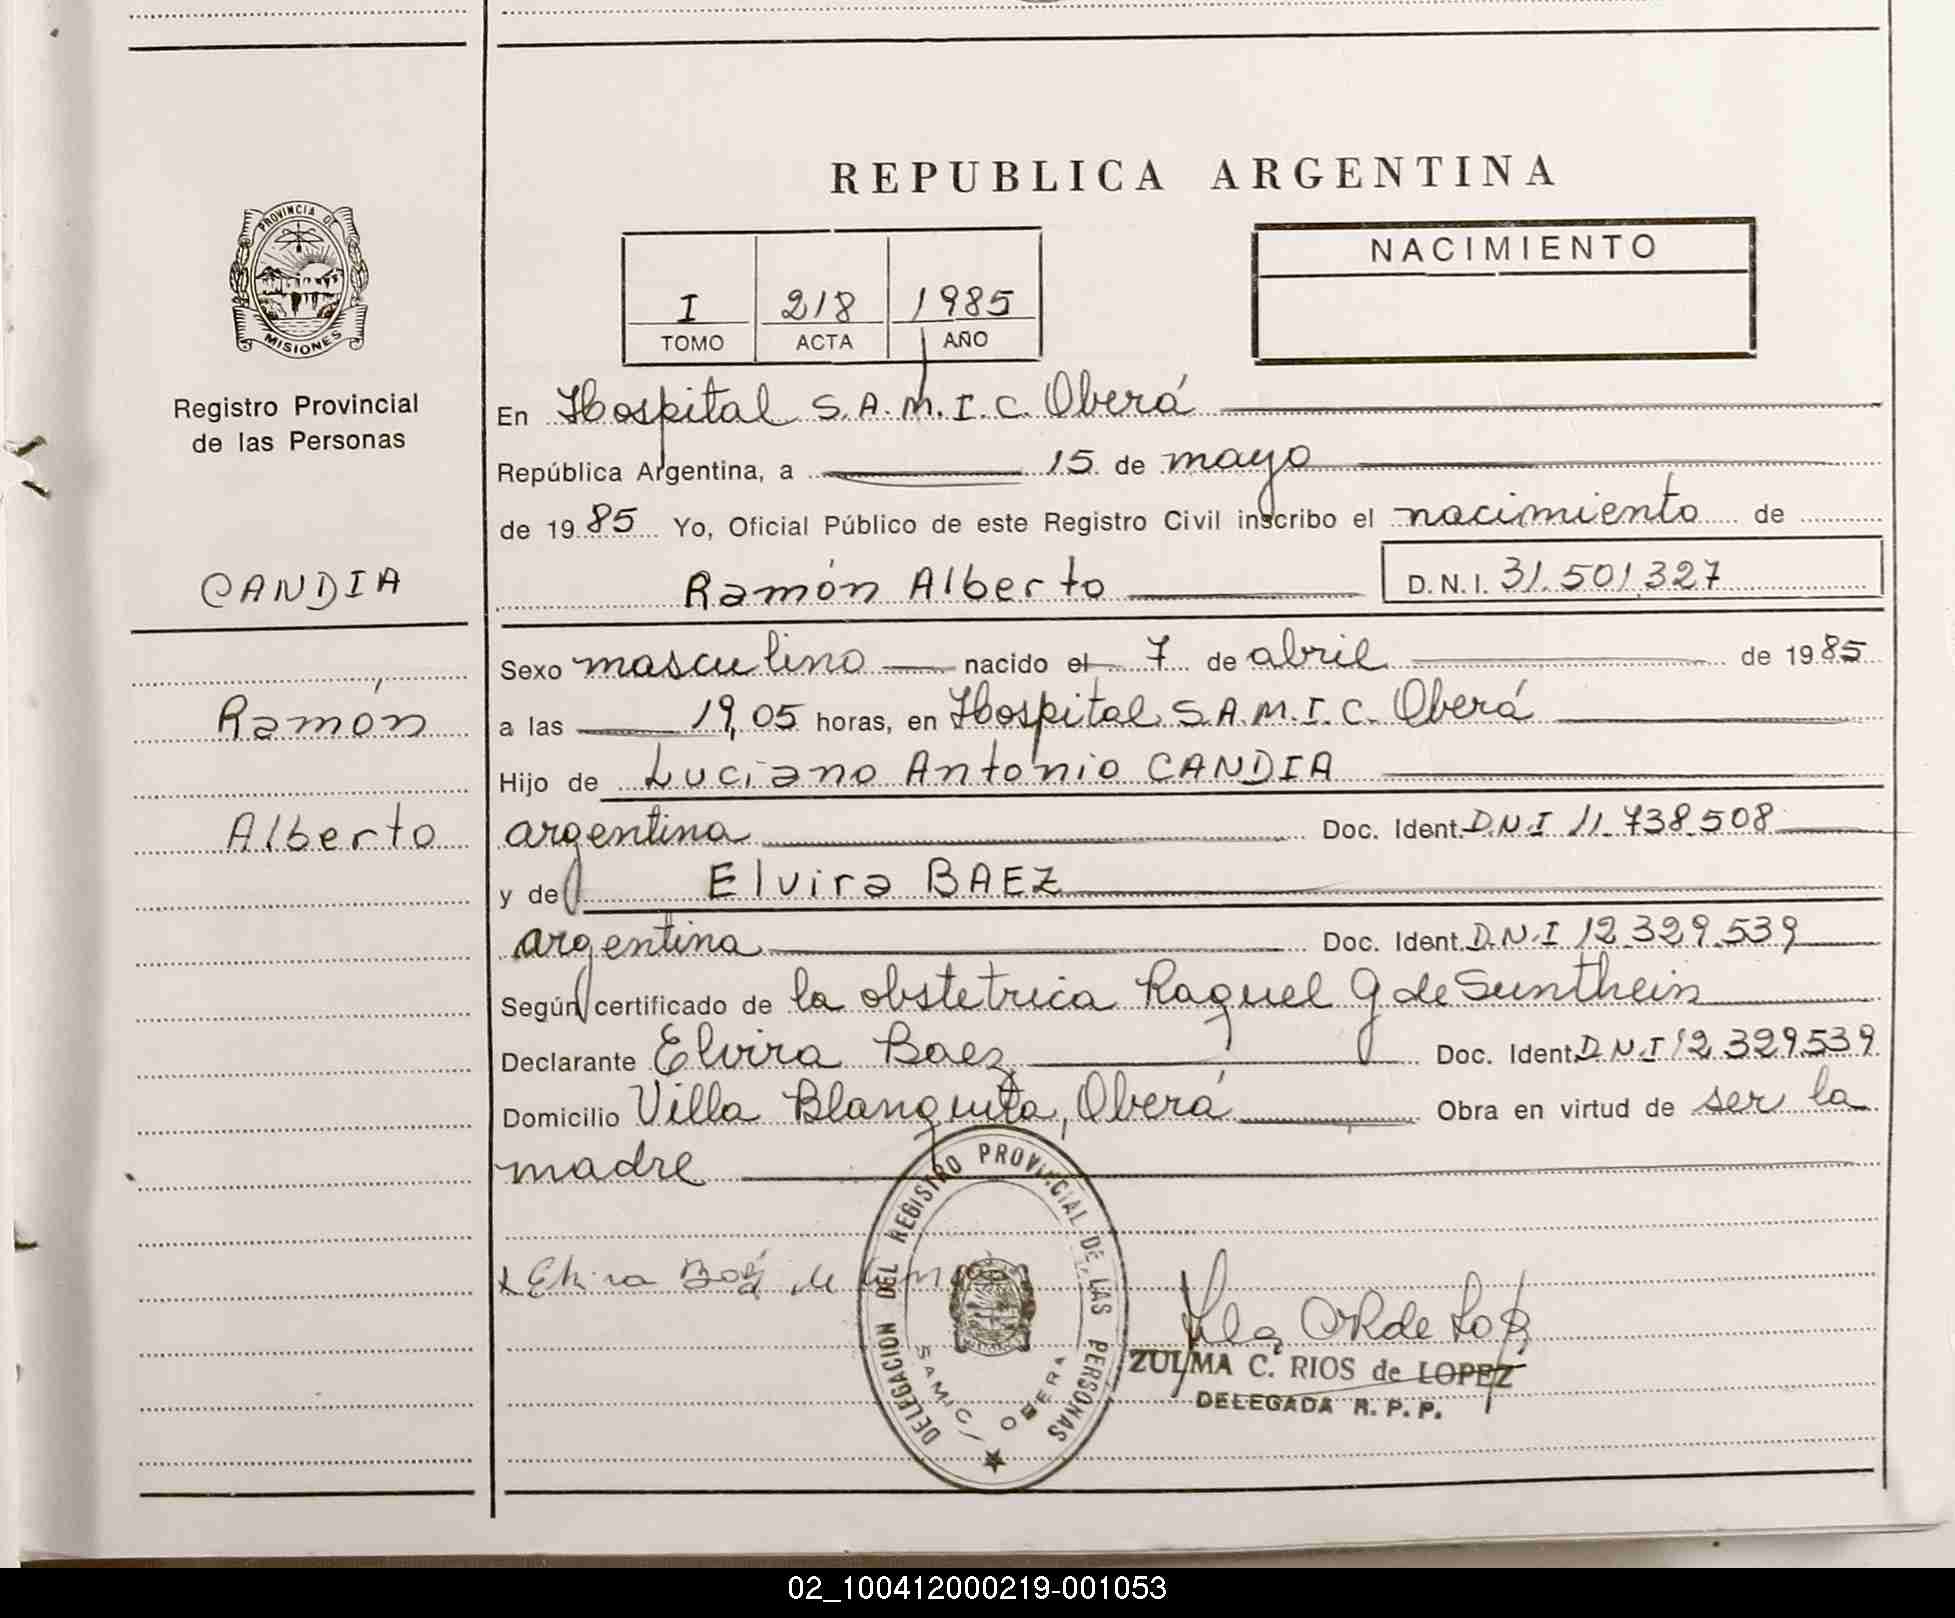 REPUBLICA ARGENTINA
PROVINCIA DE
MISIONES
Registro Provincial
de las Personas
CANDIA
Ramón
Alberto
I 218 1985
TOMO ACTA AÑO
NACIMIENTO
En Hospital S.A.M.I.C. Oberá
República Argentina, a 15 de mayo
de 1985 Yo, Oficial Público de este Registro Civil inscribo el nacimiento de
Ramón Alberto D.N.I. 31.501.327
Sexo masculino nacido el 7 de abril de 1985
a las 19,05 horas, en Hospital S.A.M.I.C. Oberá
Hijo de Luciano Antonio CANDIA
argentina Doc. Ident. D.N.I 11.738.508
y de Elvira BAEZ
argentina Doc. Ident. D.N.I 12.329.539
Según certificado de la obstetrica Raquel G de Sunthein
Declarante Elvira Baez Doc. Ident. D.N.I 12.329.539
Domicilio Villa Blanquita, Oberá Obra en virtud de ser la
madre
DELEGACION DEL REGISTRO PROVINCIAL DE LAS PERSONAS
SAMIC OBERA
x Elvira Baez de
ZULMA C. RIOS de LOPEZ
DELEGADA R. P. P.
02_100412000219-001053